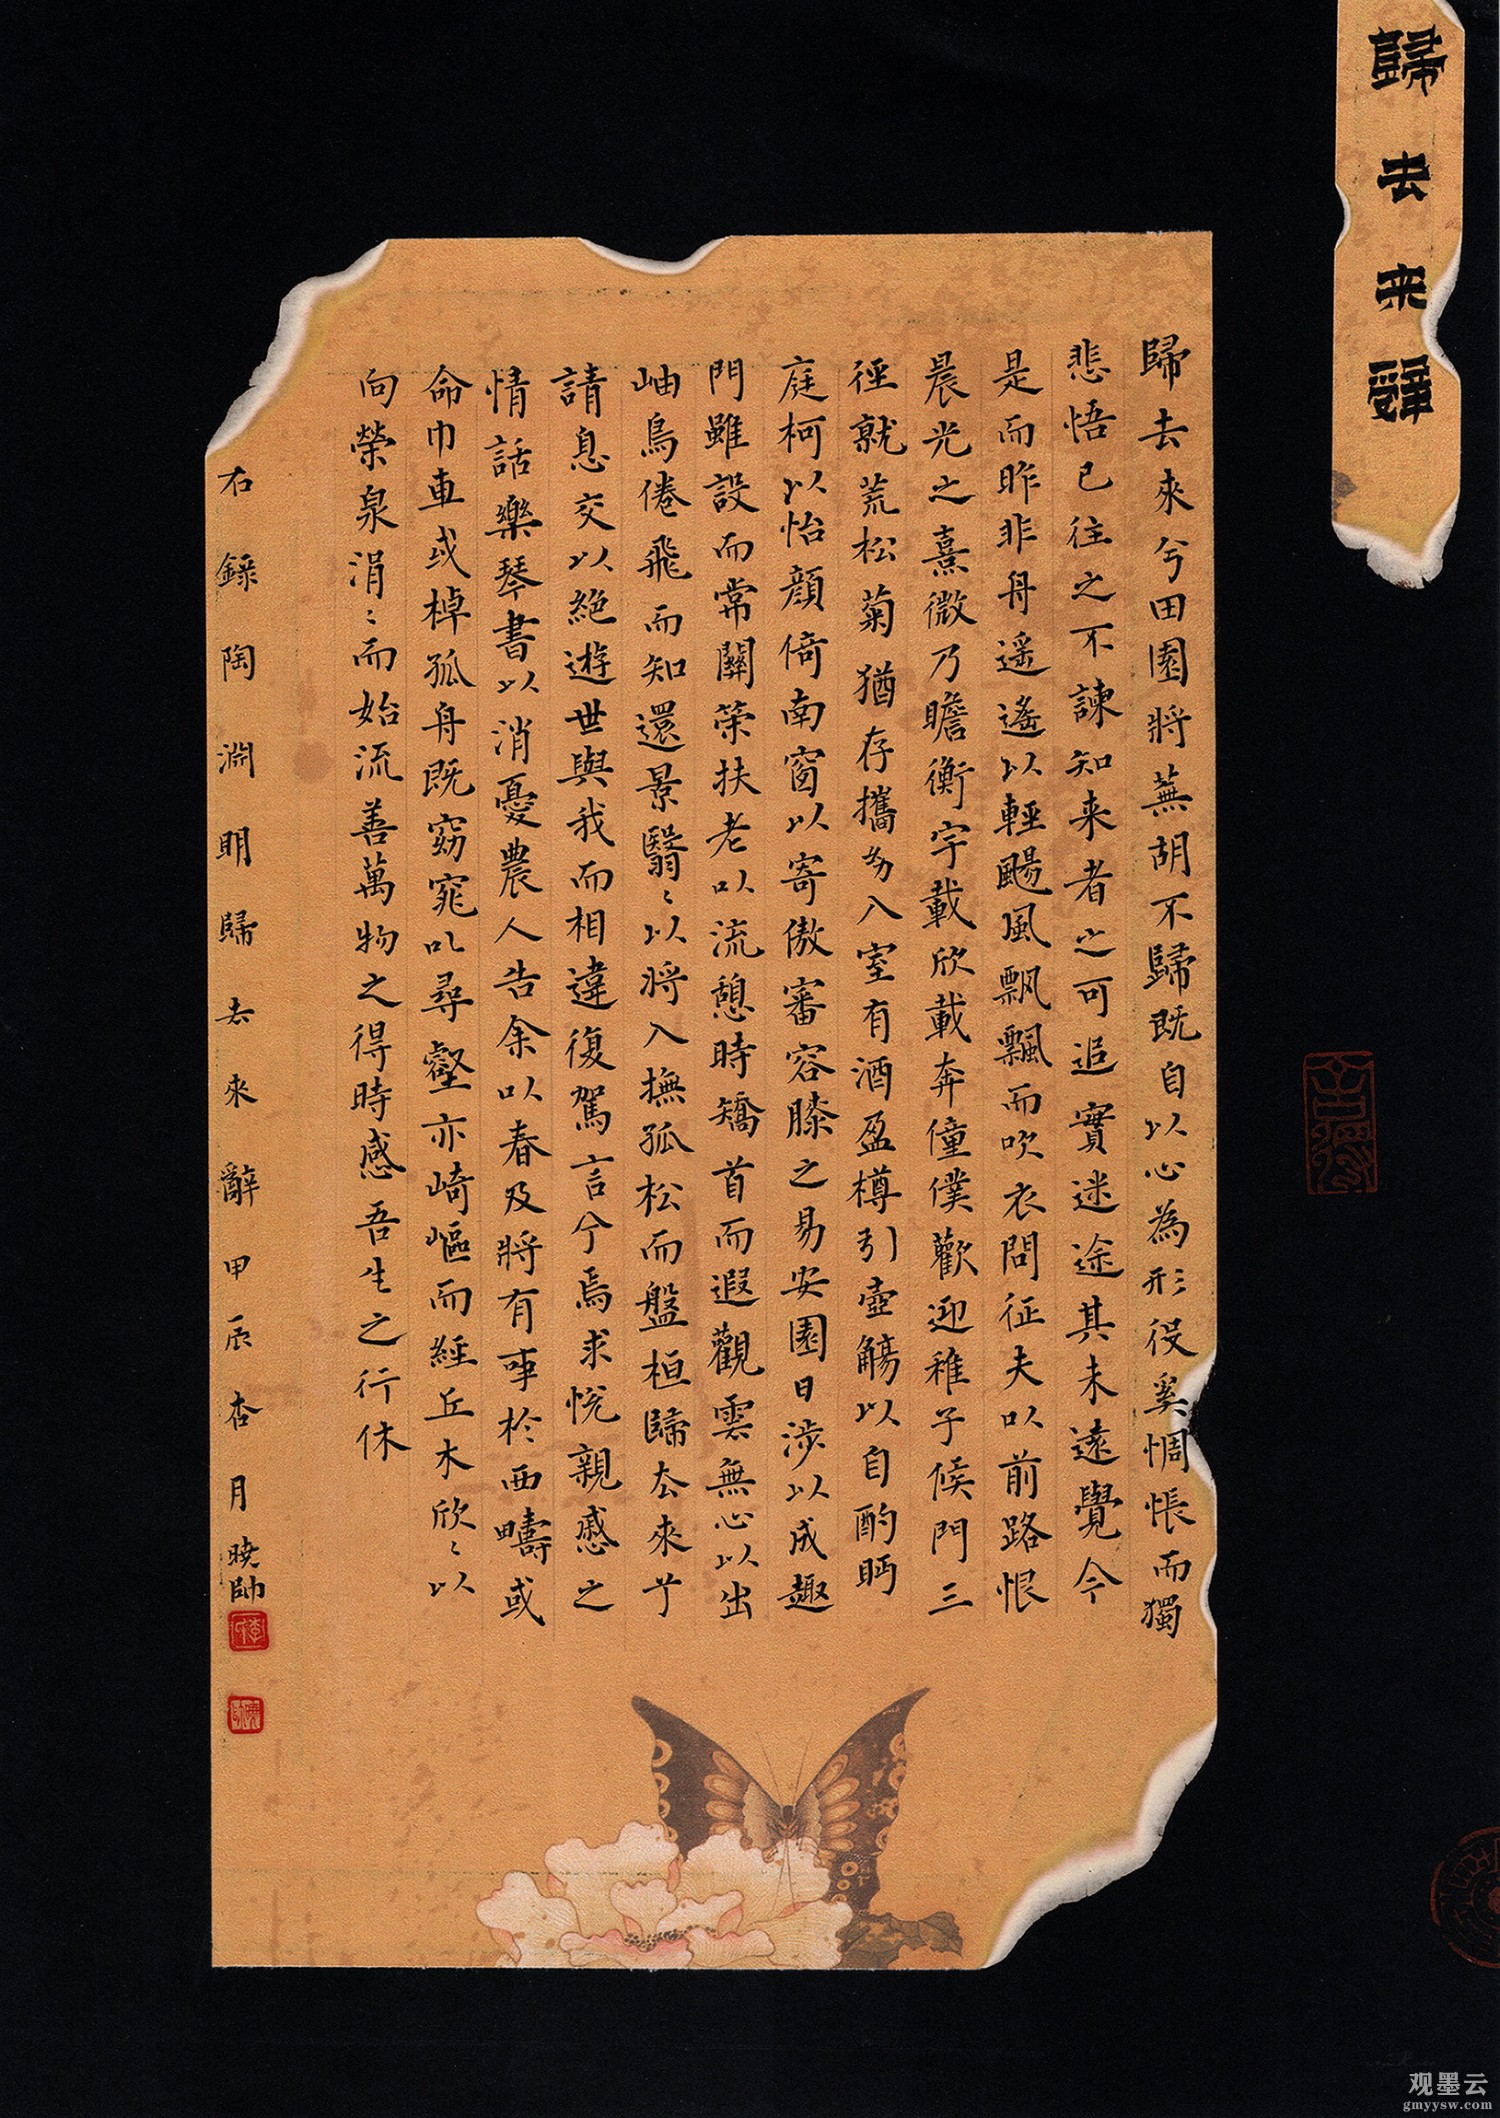 歸去来辭
歸去來兮田園將蕪胡不歸既自以心為形役奚惆悵而獨
悲悟已往之不諫知来者之可追實迷途其未遠覺今
是而昨非舟遥遙以輕颺風飄飄而吹衣問征夫以前路恨
晨光之熹微乃瞻衡宇載欣載奔僮僕歡迎稚子候門三
徑就荒松菊猶存攜幼入室有酒盈樽引壺觴以自酌眄
庭柯以怡顏倚南窗以寄傲審容膝之易安園日涉以成趣
門雖設而常關策扶老以流憩時矯首而遐觀雲無心以出
岫鳥倦飛而知還景翳〻以將入撫孤松而盤桓歸去來兮
請息交以絕遊世與我而相違復駕言兮焉求悅親慼之
情話樂琴書以消憂農人告余以春及將有事於西疇或
命巾車或棹孤舟既窈窕以尋壑亦崎嶇而經丘木欣〻以
向榮泉涓〻而始流善萬物之得時感吾生之行休
右錄陶淵明歸去來辭甲辰杏月曉帥
观墨云
gmyysw.com